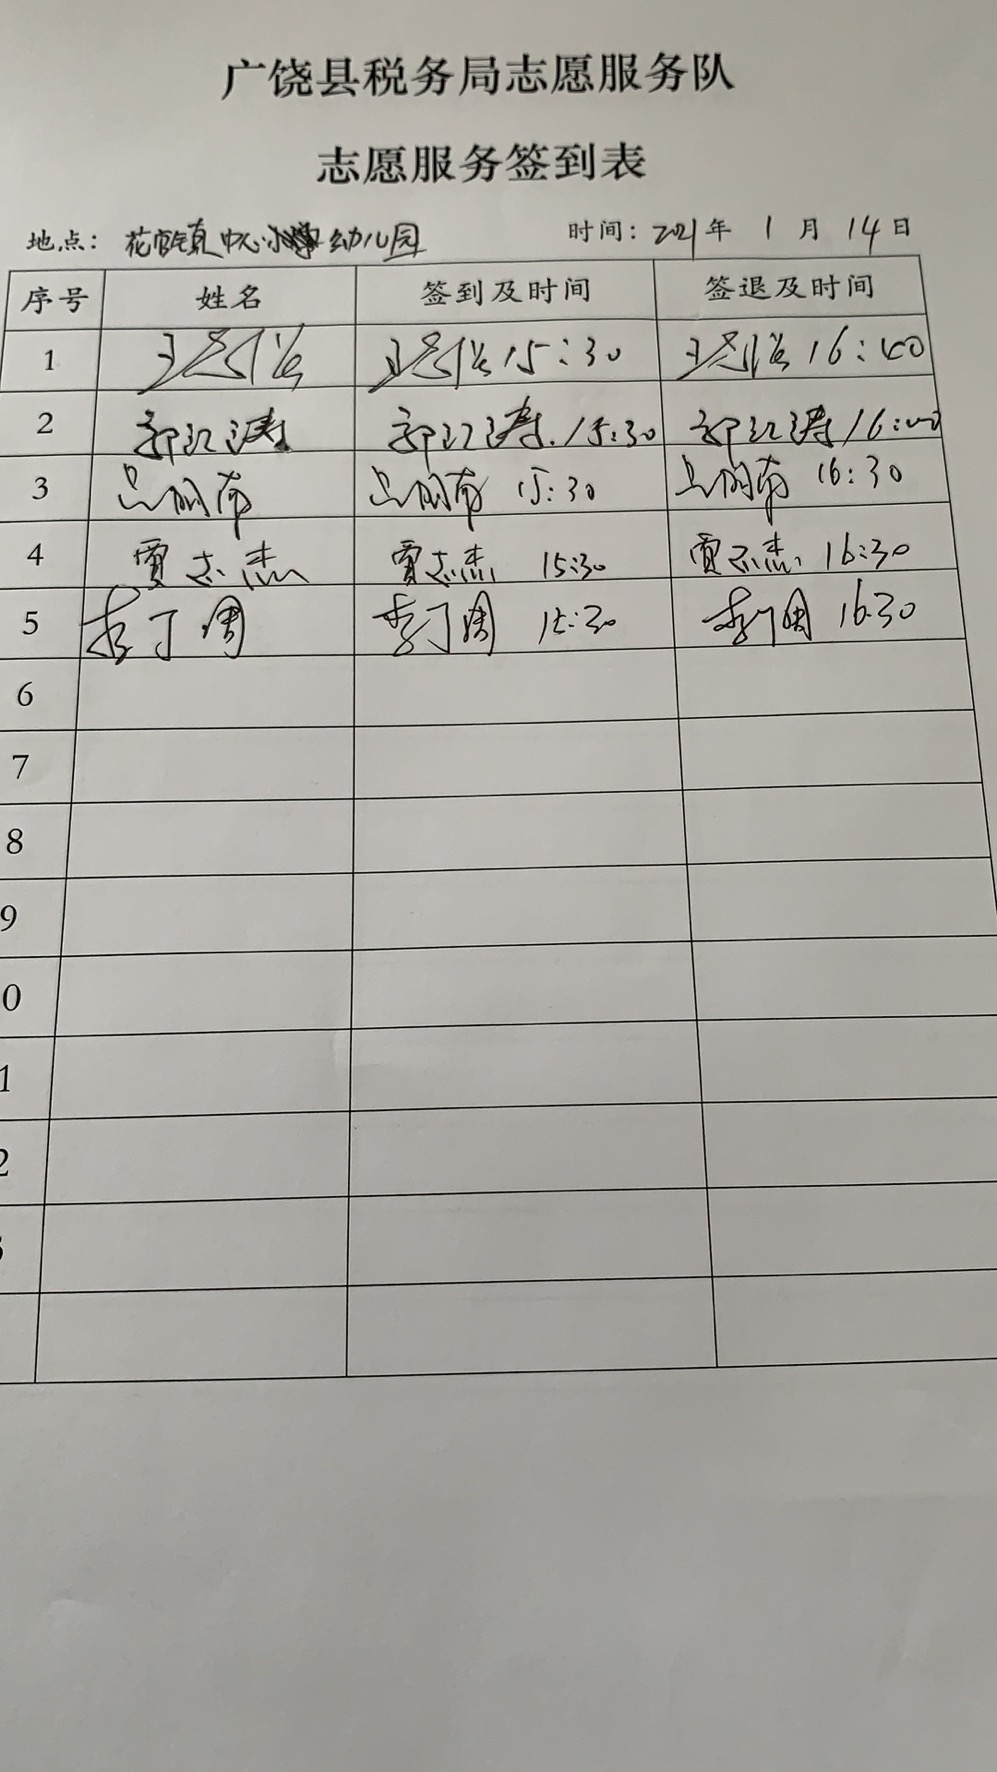 广饶县税务局志愿服务队
志愿服务签到表
地点：花官镇中心幼儿园 时间：2021年1月14日
序号 姓名 签到及时间 签退及时间
1 15:30 16:40
2 郭江涛 郭江涛 15:30 郭江涛 16:00
3 15:30 16:30
4 贾志杰 贾志杰 15:30 贾志杰 16:30
5 李丁周 李丁周 15:30 李丁周 16:30
6
7
8
9
0
1
2